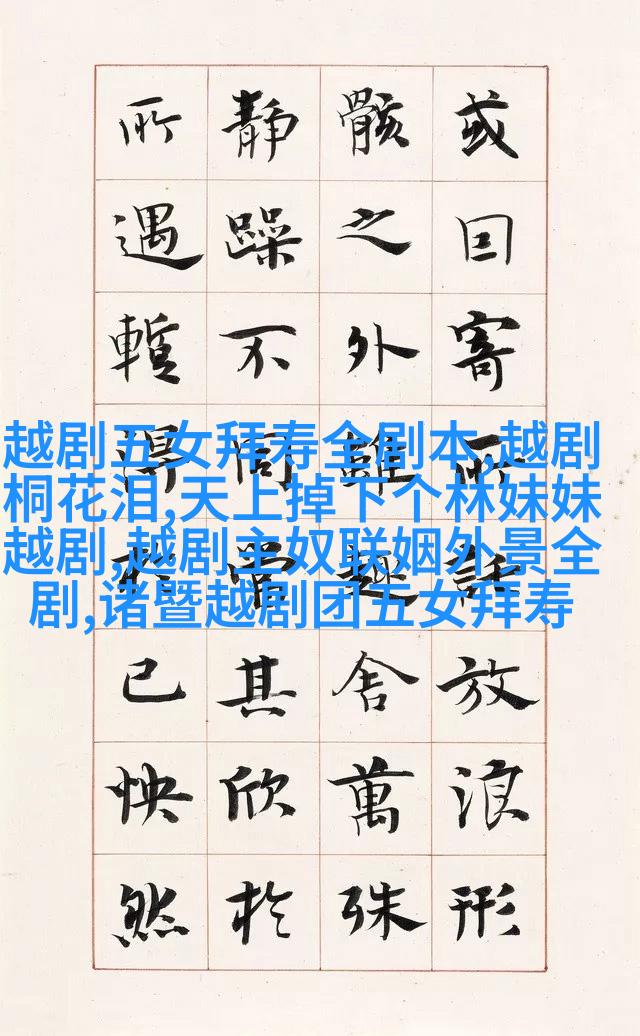 或因寄所託放浪形
骸之外雖趣舍萬殊
靜躁不同當其欣於
所遇暫得於己怏然
越剧五女拜寿全剧本,越剧
桐花泪,天上掉下个林妹妹
越剧,越剧主奴联姻外景全
剧,诸暨越剧团五女拜寿